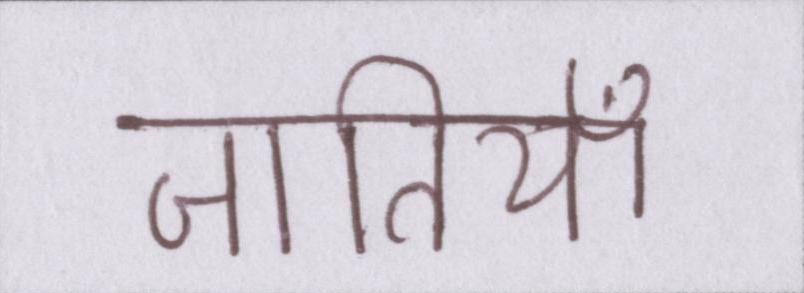 जातियाँ